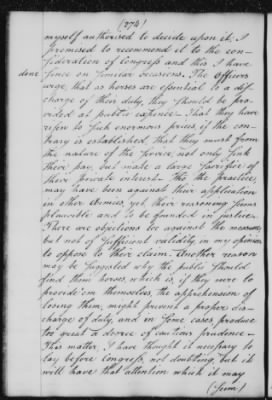 (274)
myself authorised to decide upon it; I
promised to recommend it to the con-
sideration of Congress and this I have
done since on similar occasions. The Officers
urge, that as horses are essential to a dis-
charge of their duty, they should be pro-
vided at public expence - That they have
risen to such enormous prices, if the con-
trary is established, that they must from
the nature of the service, not only sink
their pay, but make a large sacrifice of
their private interest - tho' the practice,
may have been against their application
in other Armies, yet, their reasoning seems
plausible and to be founded in justice.
There are objections too against the measure,
but not of sufficient validity, in my opinion
to oppose to their claim. Another reason
may be suggested why the public should
find them horses which is, if they were to
provide 'em themselves, the apprehension of
losing them, might prevent a proper dis-
charge of duty, and in some cases produce
too great a degree of cautious prudence -
This matter, I have thought it necessary to
lay before Congress, not doubting but it
will have that attention which it may
(seem)